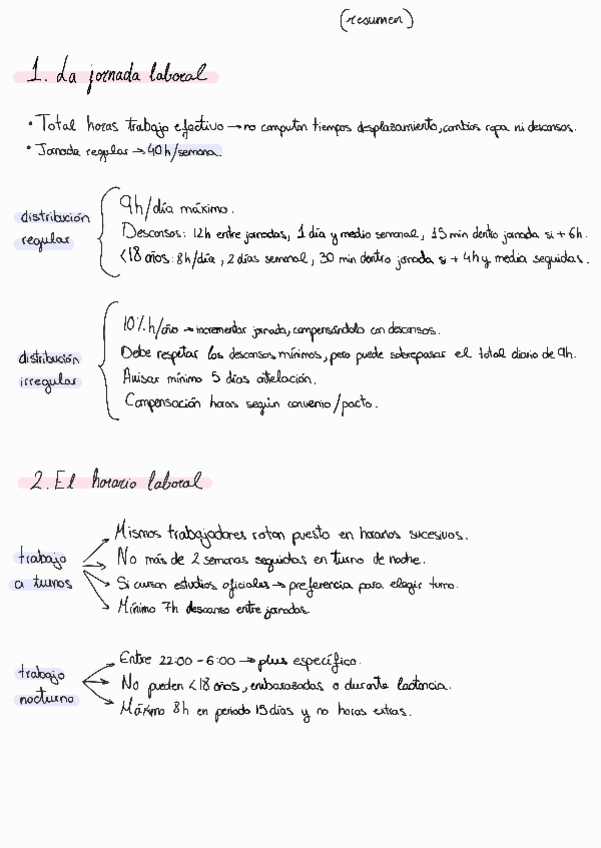 (resumen)
1. La jornada laboral
• Total horas trabajo efectivo → no computan tiempos desplazamiento, cambios ropa ni descansos.
• Jornada regular → 40h/semana.
distribución regular
9h/día máximo.
Descansos: 12h entre jornadas, 1 día y medio semanal, 15 min dentro jornada si + 6h.
<18 años: 8h/día, 2 días semanal, 30 min dentro jornada si + 4h y media seguidas.
distribución irregular
10% h/año → incrementar jornada, compensándolo con descansos.
Debe respetar los descansos mínimos, pero puede sobrepasar el total diario de 9h.
Avisar mínimo 5 días antelación.
Compensación horas según convenio/pacto.
2. El horario laboral
trabajo a turnos
Mismos trabajadores rotan puesto en horarios sucesivos.
No más de 2 semanas seguidas en turno de noche.
Si cursan estudios oficiales → preferencia para elegir turno.
Mínimo 7h descanso entre jornadas
trabajo nocturno
Entre 22:00 - 6:00 → plus específico.
No pueden <18 años, embarazadas o durante lactancia.
Máximo 8h en periodo 15 días y no horas extras.